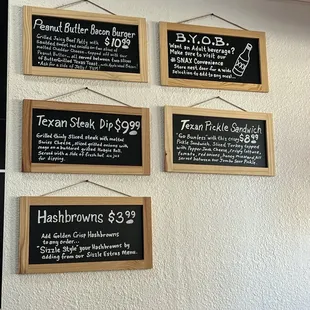 Peanut Butter Bacon Burger
$10.99
Grilled Juicy Beef Patty with
Shredded Sweet
melted Cheddar Cheese
Peanut Butter
of Butter Grilled Texas Toast
B.Y.O.B.
Want an Adult beverage?
Make sure to visit our
SNAX Convenience
Store next door for a wide
Selection to add to any meal...
Texan Steak Dip $9.99
Grilled thinly Sliced steak with melted
Swiss Cheese, sliced grilled onions with
mayo on a buttered grilled Hoagie Roll.
Served with a side of fresh hot au jus
for dipping.
Texan Pickle Sandwich
"Go Bunless" with this crisp $8.99
Pickle Sandwich. Sliced Turkey topped
with Pepper Jack Cheese, crispy lettuce,
tomato, red onions, Honey Mustard All
served between our Jumbo Sour Pickle.
Hashbrowns $3.99
Add Golden Crisp Hashbrowns
to any order...
"Sizzle Style" your Hashbrowns by
adding from our Sizzle Extras Menu.